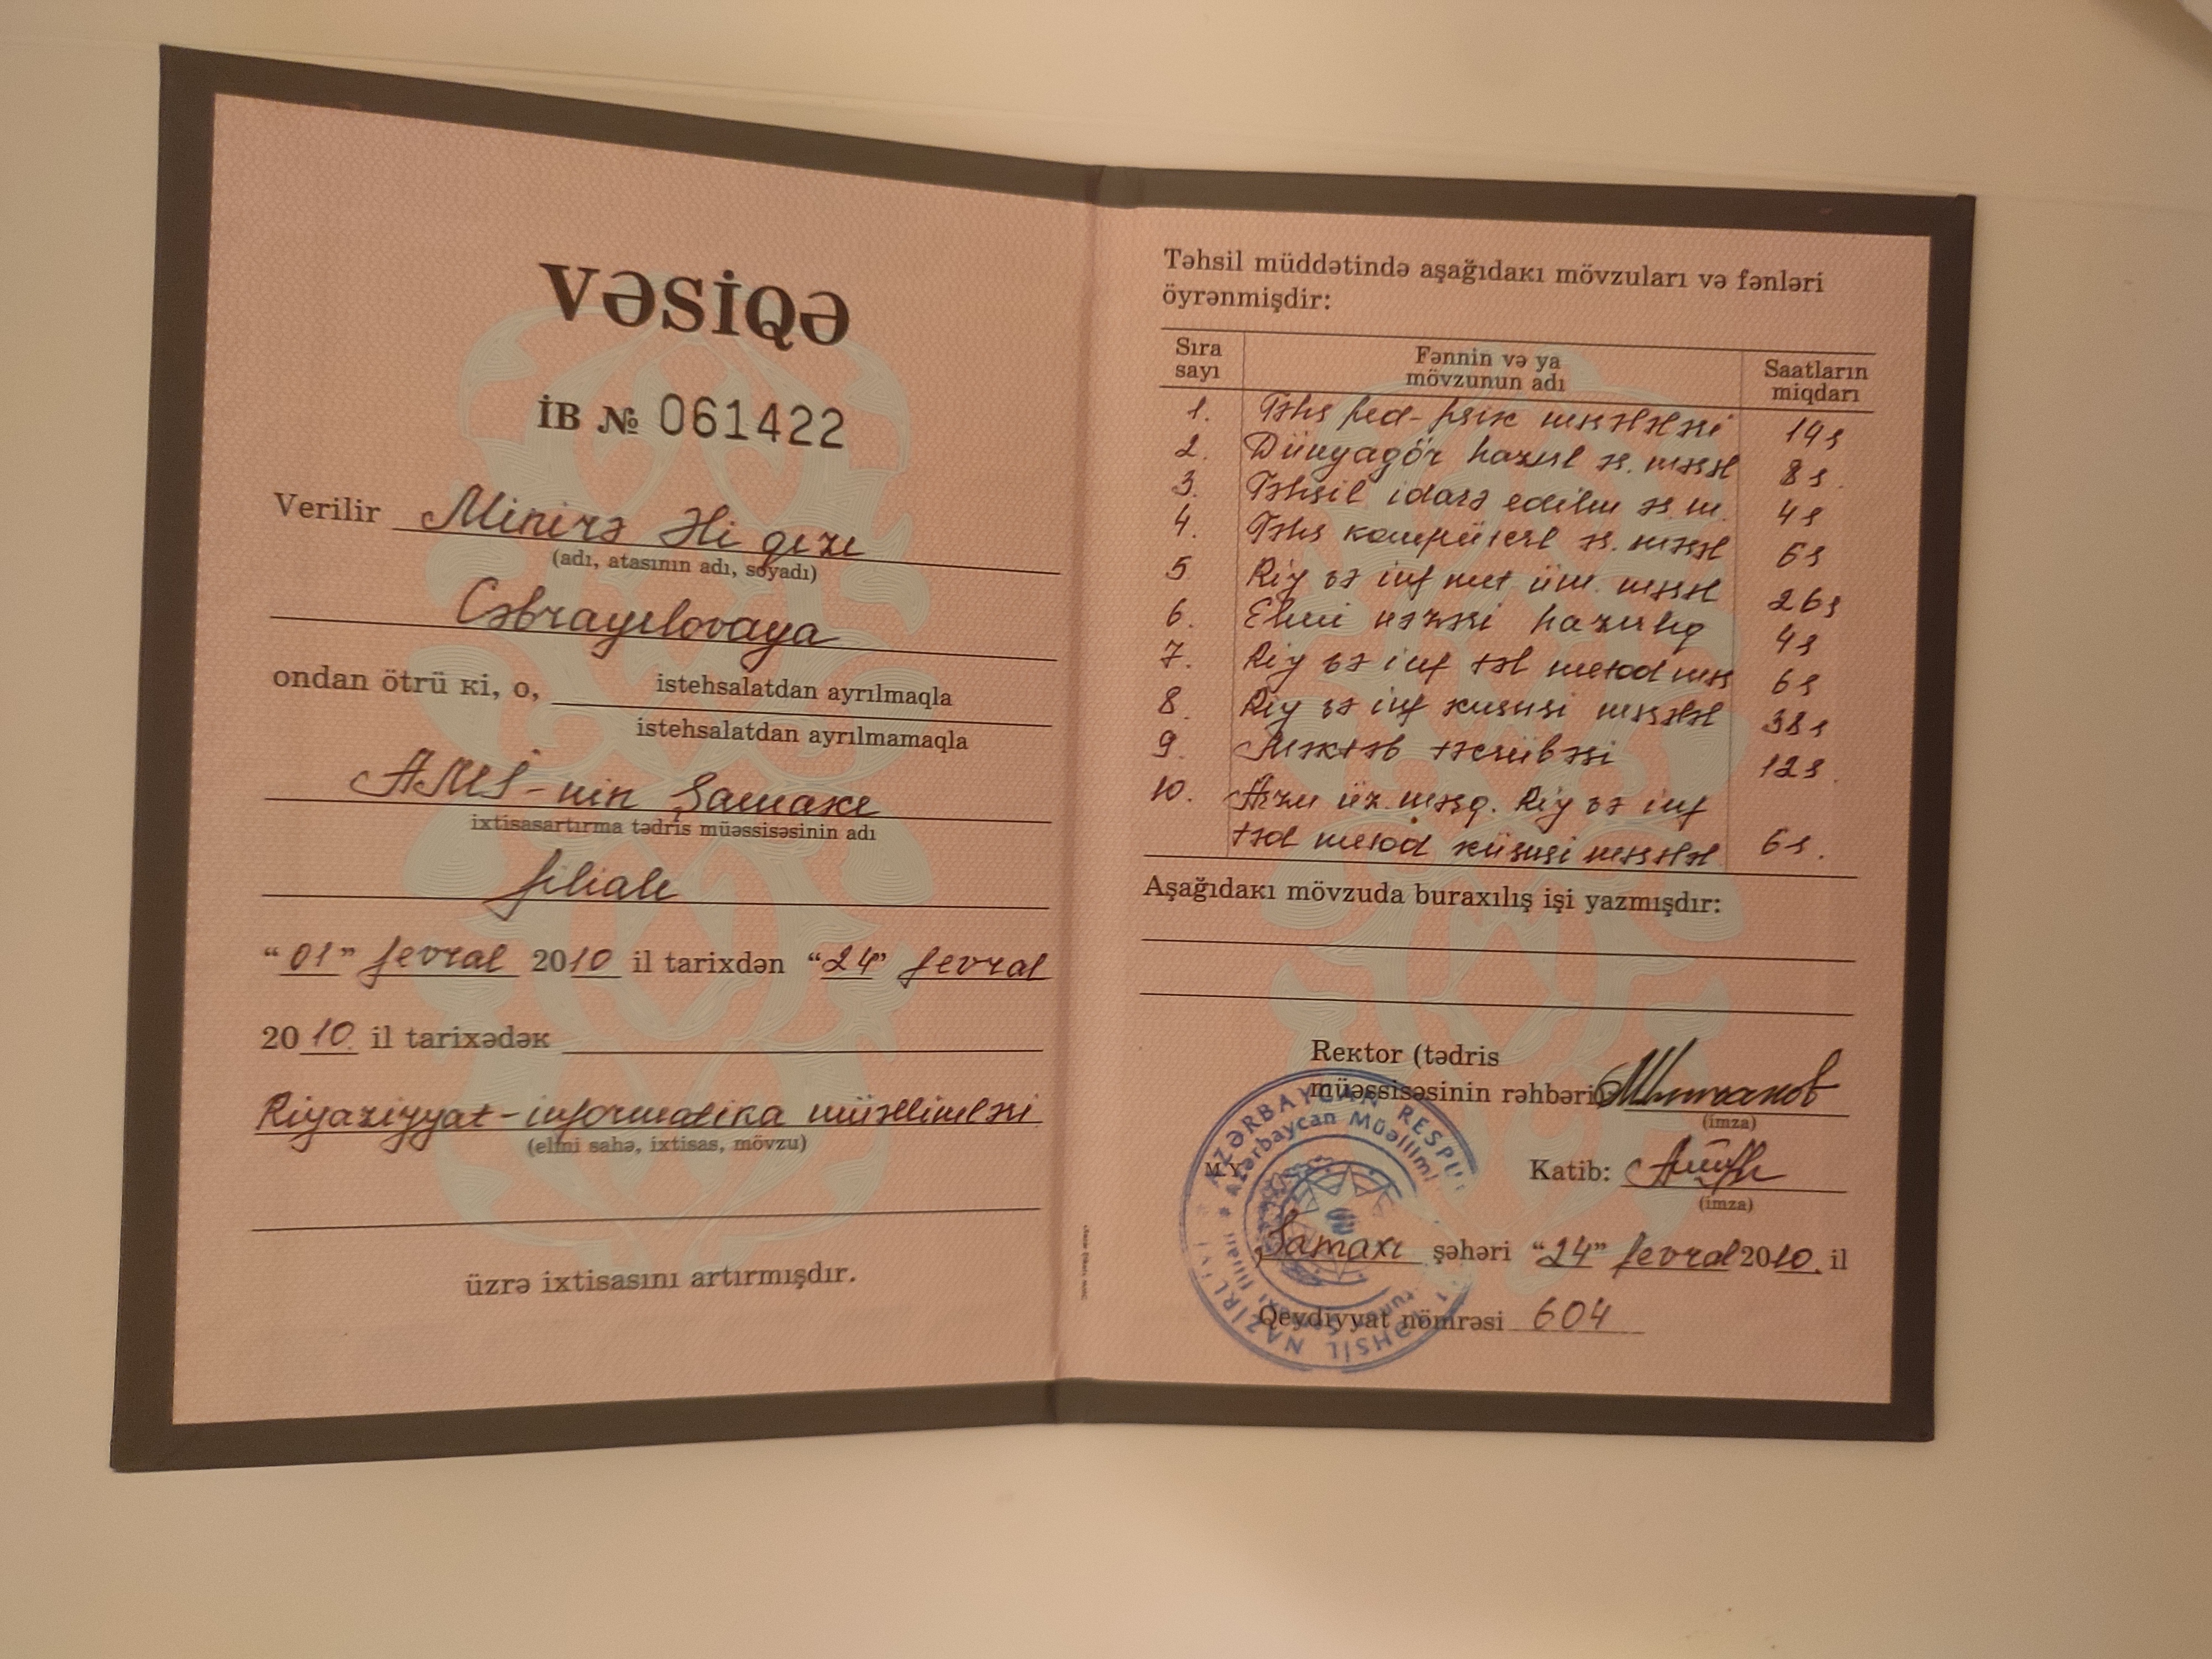 VƏSİQƏ
İB № 061422
Verilir Minirə Əli qızı
(adı, atasının adı, soyadı)
Cəbrayılovaya
ondan ötrü ki, o, istehsalatdan ayrılmaqla
istehsalatdan ayrılmamaqla
AMİ-nin Şamaxı
ixtisasartırma tədris müəssisəsinin adı
filialı
"01" fevral 2010 il tarixdən "24" fevral
2010 il tarixədək
Riyaziyyat-informatika müəlliməsi
(elmi sahə, ixtisas, mövzu)
üzrə ixtisasını artırmışdır.
Təhsil müddətində aşağıdakı mövzuları və fənləri
öyrənmişdir:
Sıra sayı Fənnin və ya mövzunun adı Saatların miqdarı
1. Təhs ped-psix məsələləri 14s
2. Dünyagör hazırl əs. məsəl 8s.
3. Təhsil idarə edilm əs. m. 4s
4. Təhs kompüterl əs. məsəl 6s
5 Riy və inf met üm. məsəl 26s
6. Elmi nəzəri hazırlıq 4s
7. Riy və inf təl metod məs 6s
8. Riy və inf xususi məsələl 38s
9. Məktəb təcrübəsi 12s.
10. Arzu üz. məşq. Riy və inf
təd metod xüsusi məsələl 6s.
Aşağıdakı mövzuda buraxılış işi yazmışdır:
Rektor (tədris
müəssisəsinin rəhbəri)
(imza)
M.Y.
Katib:
(imza)
Şamaxı şəhəri "24" fevral 2010. il
Qeydiyyat nömrəsi 604
AZƏRBAYCAN RESPU
TƏHSİL NAZİRLİYİ
Azərbaycan Müəllimlə